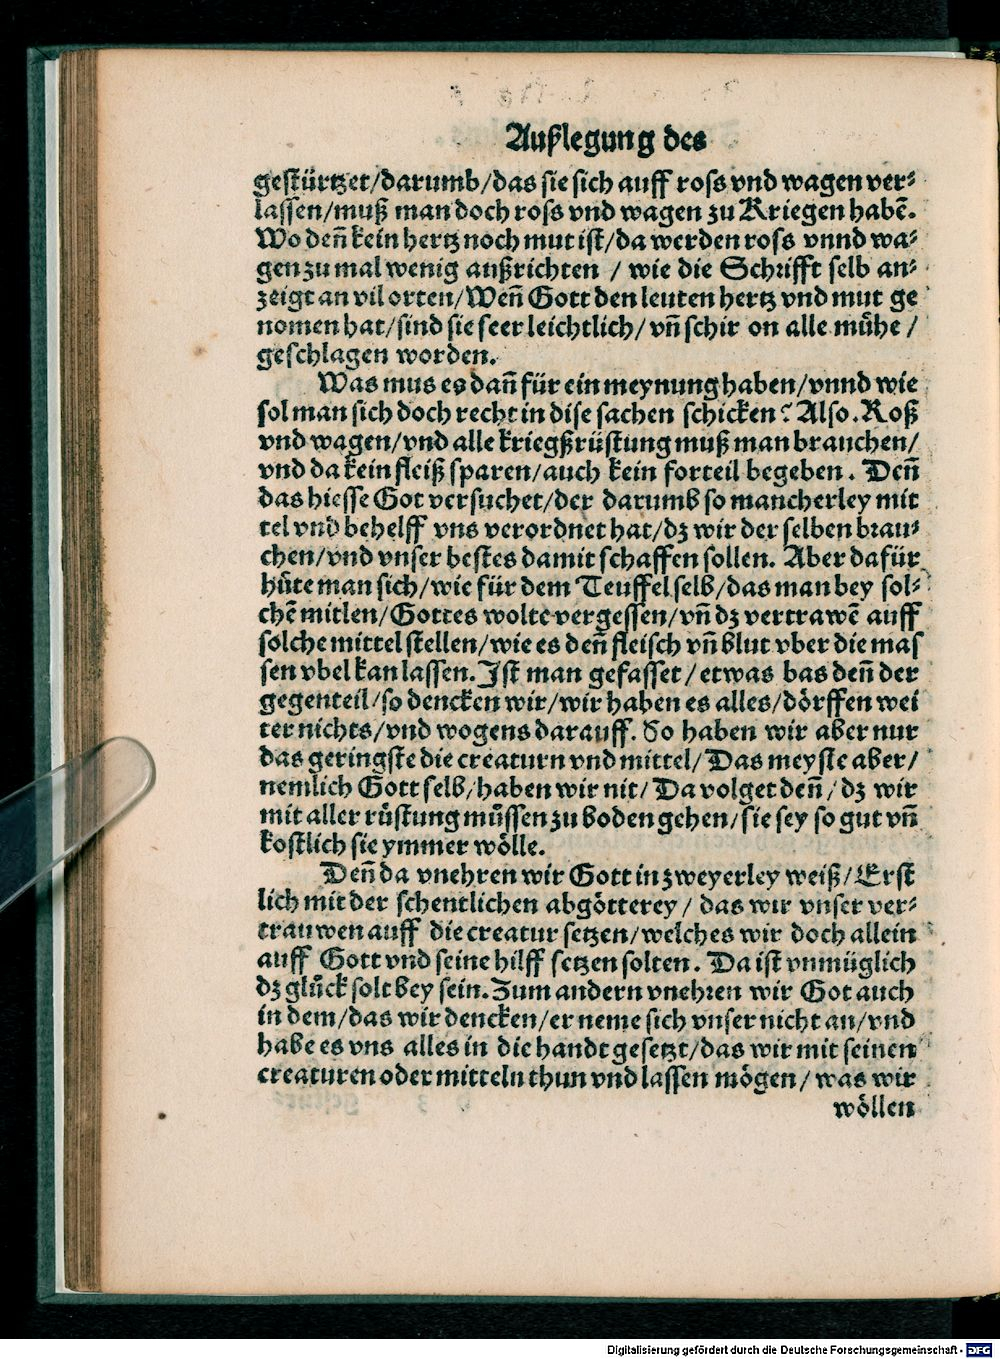 Außlegung des
gestürtzet/darumb/das sie sich auff ross vnd wagen ver⸗
lassen/muß man doch ross vnd wagen zu Kriegen habē.
Wo deñ kein hertz noch mut ist/da werden ross vnnd wa⸗
gen zu mal wenig außrichten / wie die Schrifft selb an⸗
zeigt an vil orten/Weñ Gott den leuten hertz vnd mut ge
nomen hat/sind sie seer leichtlich/vñ schir on alle mühe /
geschlagen worden.
Was mus es dañ für ein meynung haben/vnnd wie
sol man sich doch recht in dise sachen schicken? Also. Roß
vnd wagen/vnd alle kriegßrüstung muß man brauchen/
vnd da kein fleiß sparen/auch kein forteil begeben. Deñ
das hiesse Got versuchet/der darumb so mancherley mit
tel vnd behelff vns verordnet hat/dz wir der selben brau⸗
chen/vnd vnser bestes damit schaffen sollen. Aber dafür
hüte man sich/wie für dem Teuffel selb/das man bey sol⸗
chē mitlen/Gottes wolte vergessen/vñ dz vertrawē auff
solche mittel stellen/wie es deñ fleisch vñ blut vber die mas
sen vbel kan lassen. Ist man gefasset/etwas bas deñ der
gegenteil/so dencken wir/wir haben es alles/dörffen wei
ter nichts/vnd wogens darauff. So haben wir aber nur
das geringste die creaturn vnd mittel/Das meyste aber/
nemlich Gott selb/haben wir nit/Da volget deñ/dz wir
mit aller rüstung müssen zu boden gehen/sie sey so gut vñ
kostlich sie ymmer wölle.
Deñ da vnehren wir Gott in zweyerley weiß/Erst
lich mit der schentlichen abgötterey/das wir vnser ver⸗
trauwen auff die creatur setzen/welches wir doch allein
auff Gott vnd seine hilff setzen solten. Da ist vnmüglich
dz glück solt bey sein. Zum andern vnehren wir Got auch
in dem/das wir dencken/er neme sich vnser nicht an/vnd
habe es vns alles in die handt gesetzt/das wir mit seinen
creaturen oder mitteln thun vnd lassen mögen/was wir
wöllen
Digitalisierung gefördert durch die Deutsche Forschungsgemeinschaft - DFG